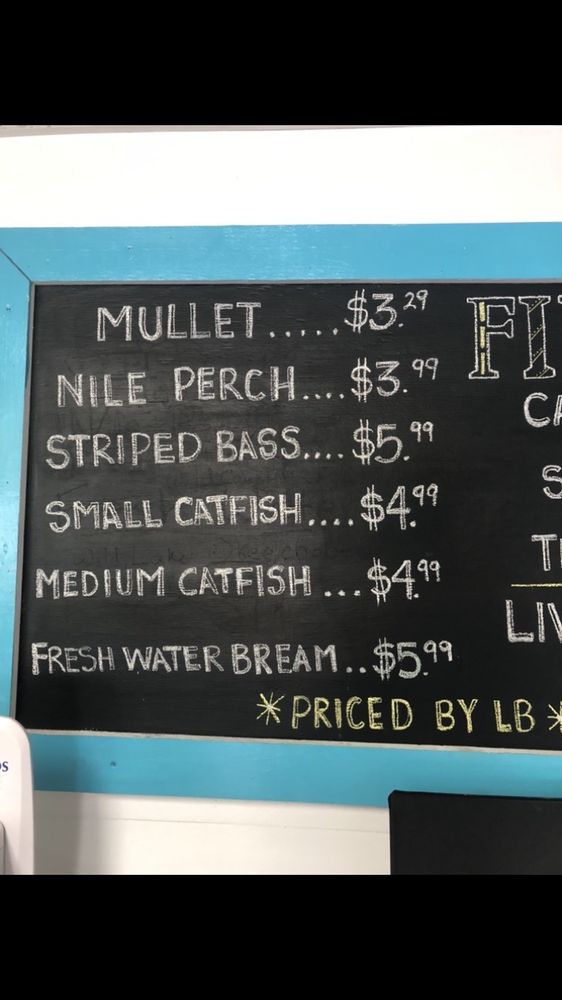 MULLET.....$3.29
NILE PERCH....$3.99
STRIPED BASS....$5.99
SMALL CATFISH....$4.99
MEDIUM CATFISH...$4.99
FRESH WATER BREAM..$5.99
*PRICED BY LB*